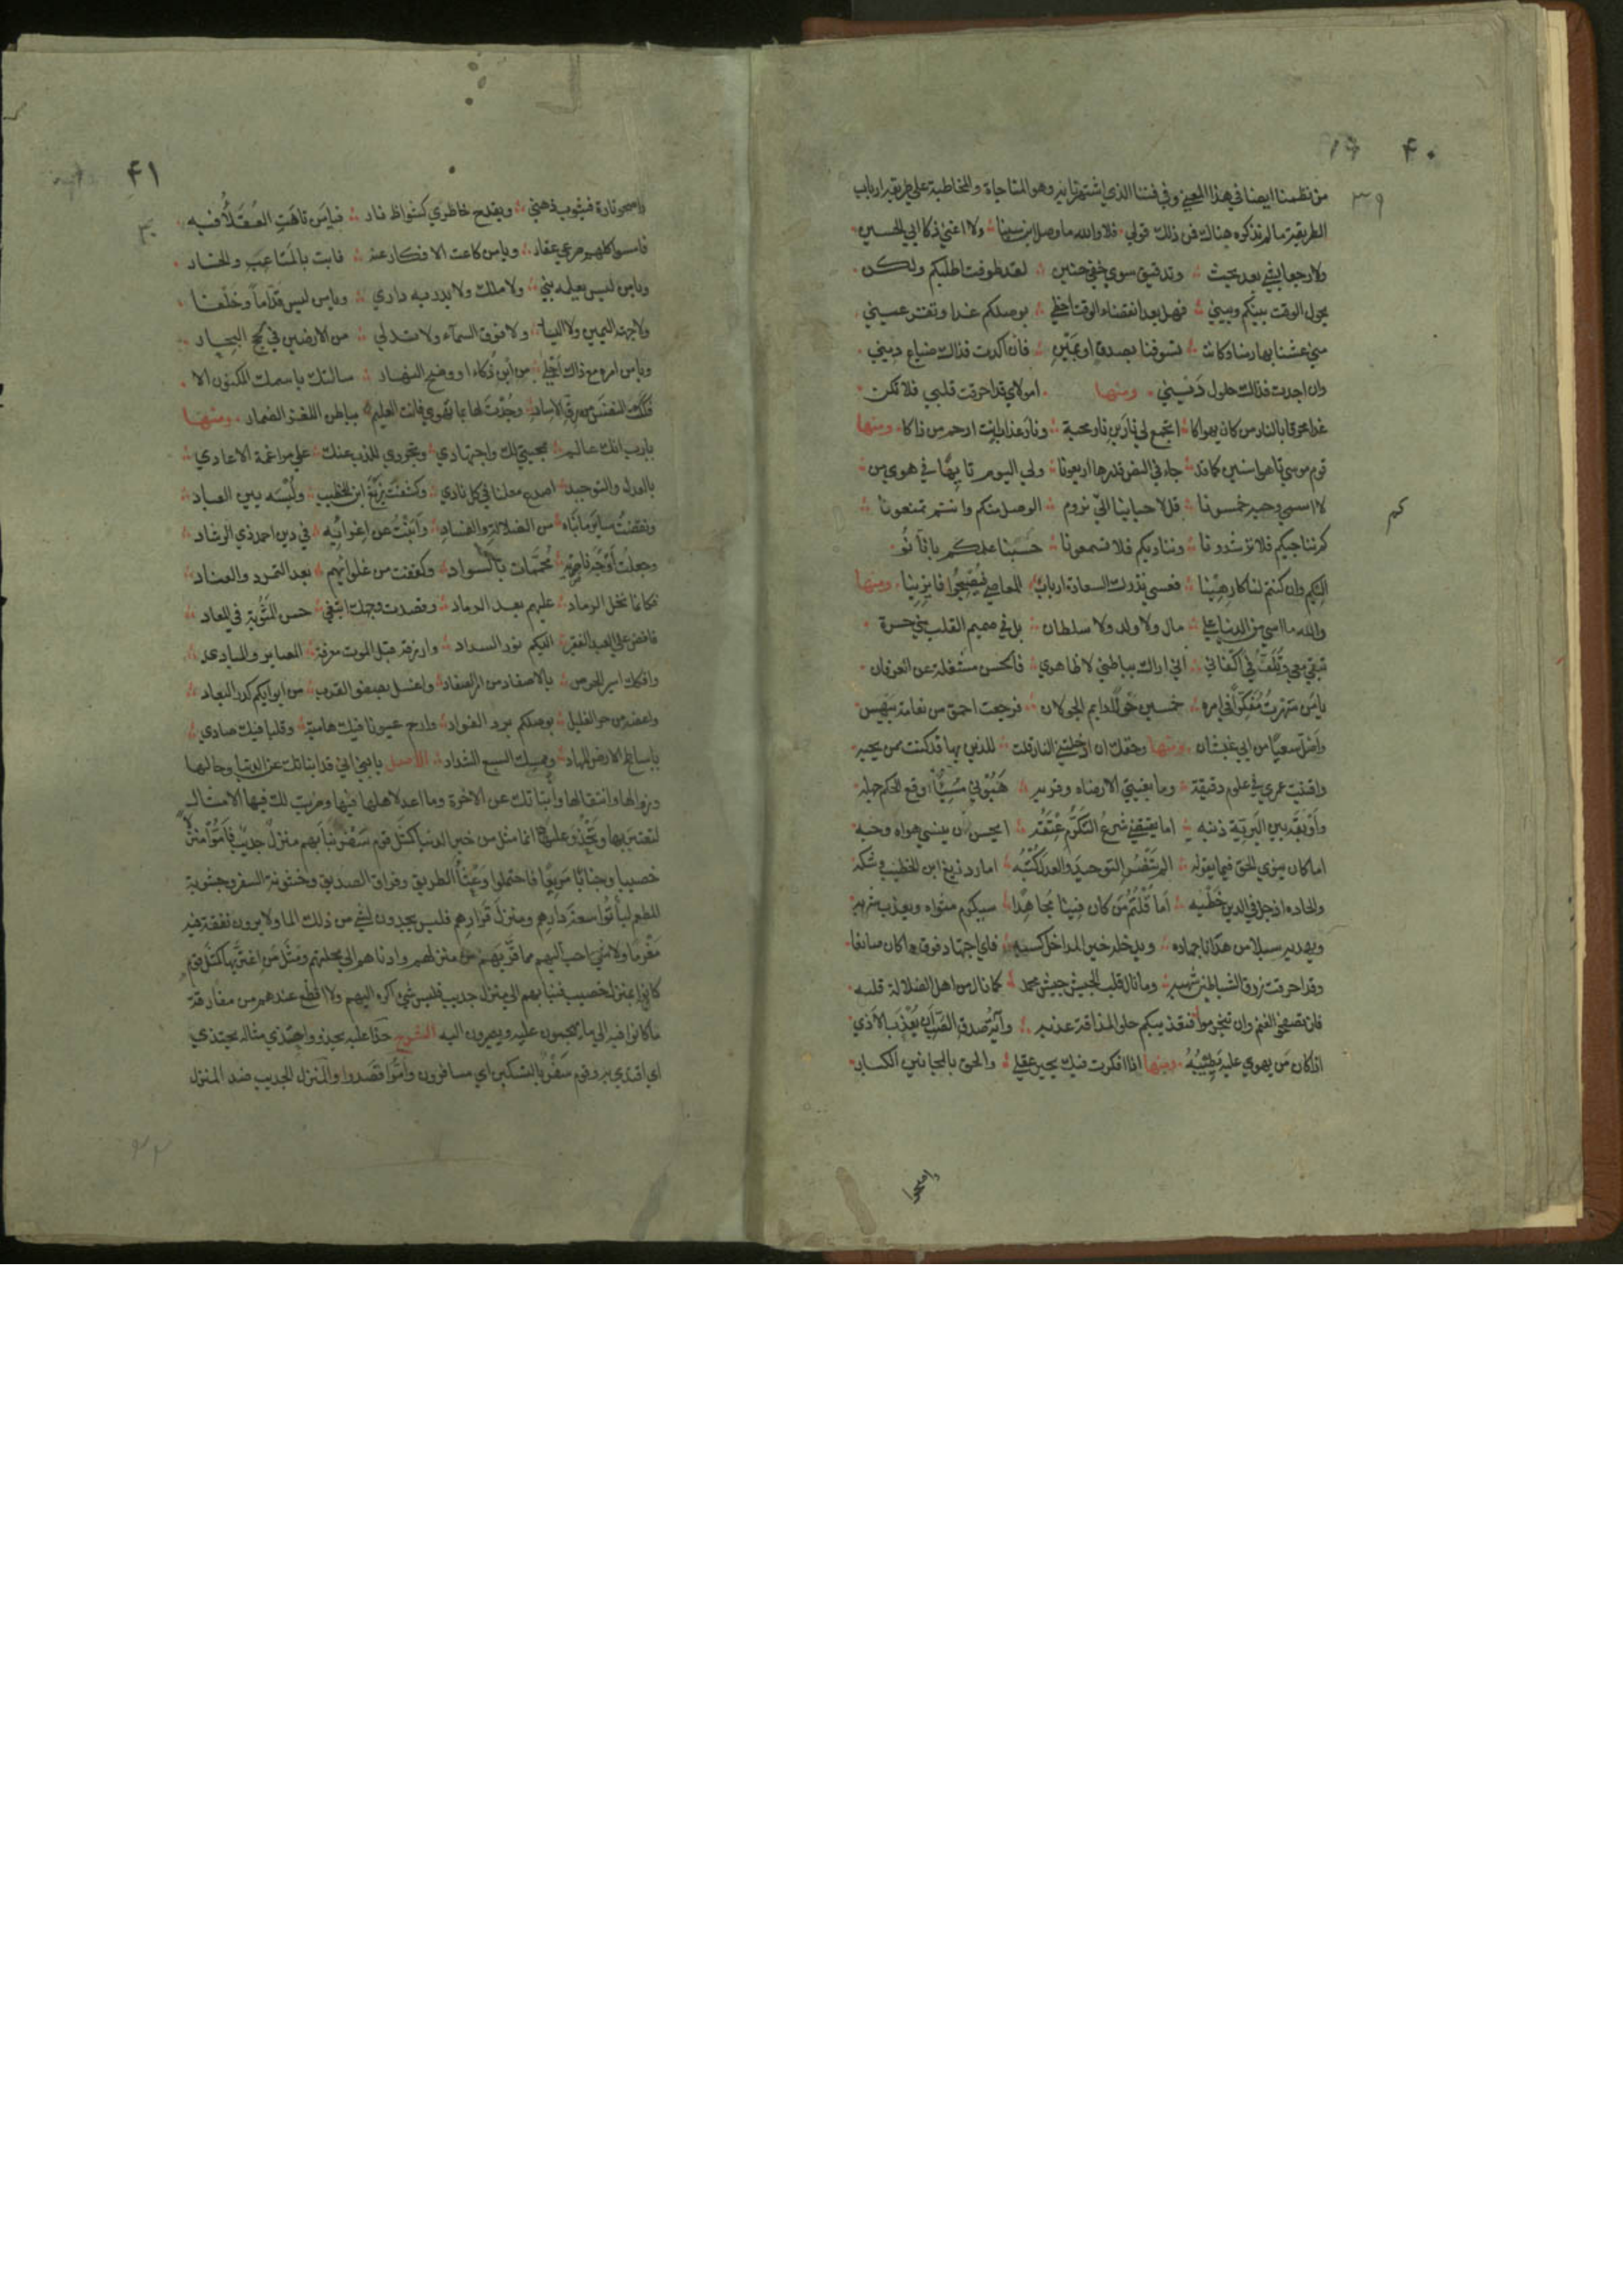 ۴۰
۳۹
من نظمنا ايضا في هذا المعنى وفي فننا الذي اشتهرنا به وهو المناجاة والمخاطبة على طريقة ارباب
الطريقة ما لم نذكره هناك فمن ذلك قولي فلا والله ما وصل ابن سينا ولا اغنى ذكا ابي الحسين
ولا رجعا بشي بعد بحث وتدقيق سوى خفي حنين لقد طوفت اطلبكم ولكن
يحول الوقت بينكم وبيني فهل بعد انقضاء الوقت احظى بوصلكم غدا وتقر عيني
منى عشنا بها زمنا وكانت تسوفنا بصدق او بمين فان اكدت فذاك ضياع ديني
وان اجدت فذاك حلول ديني ومنها امولاي قد احرقت قلبي فلا تكن
غدا محرقا بالنار من كان يهواكا اتجمع لي نارين نار محبة ونار عذاب انت ارحم من ذاكا ومنها
قوم موسى تاهوا سنين كما قد جاء في النص قدرها اربعونا ولي اليوم تايها في هوى من
لا اسمي وحبه خمسونا قل لاحبابنا الى نروم الوصل منكم وانتم تمنعونا
كم نناجيكم فلا ترشدونا ونناديكم فلا تسمعونا حسبنا علمكم بانا
اليكم وان كنتم لنا كارهينا فعسى تدرك السعادة ارباب المعاصي فيصبحوا فايزينا ومنها
والله ما اسى من الدنيا على مال ولا ولد ولا سلطان بل في صميم القلب مني حسرة
تبقى معي وتلف في اكفاني اني اراك بباطني لا ظاهري فالحس مشغلة عن العرفان
يا من سهرت مفكرا في امره خمسين حولا دايم الجولان فرجعت احمق من نعامة بيهس
واضل سعيا من ابي غبشان ومنها وحقك ان ادخلتني النار قلت للذين بها قد كنت ممن يحبه
وافنيت عمري في علوم دقيقة وما بغيتي الا رضاه وقربه هبوني مسيئا اوقع الحلم جهله
واوبقه بين البرية ذنبه اما يقتضي شرع التكرم عتقه ايحسن ان ينسى هواه وحبه
اما كان ينوي الحق فيما يقوله الم تنصر التوحيد والعدل كتبه اما رد زيغ ابن الخطيب وشكه
والحاده اذ جل في الدين خطبه اما قلتم من كان فينا مجاهدا سيكرم مثواه ويعذب شربه
ويهديه سبلا من هدانا جهاده ويدخله خير المداخل كسبه فاي اجتهاد فوق ما كان صانعا
وقد احرقت زرق الشياطين شهبه وما نال قلب الجيش جيش محمد كما نال من اهل الضلالة قلبه
فان تصفحوا نغنم وان تتجرموا فتعذيبكم حلو المذاقة عذبه وآية صدق الصب ان يعذب الاذى
اذا كان من يهوى عليه يصبه ومنها اذا افكرت فيك يحير عقلي والحق بالمجانين الكبار
كم
واصحوا
۴۱
واصحو تارة فيثوب ذهني ويقدح خاطري كشواظ نار فيا من تاهت العقلاء فيه
فامسوا كلهم صرعى عقار ويا من كاعت الافكار عنه فابت بالمتاعب والخسار
ويا من ليس يعلمه نبي ولا ملك ولا يدريه داري ويا من ليس قداما وخلفا
ولا جهة اليمين ولا اليسار ولا فوق السماء ولا تدلى من الارضين في لجج البحار
ويا من امره مع ذاك اجلى من ابن ذكاء او وضح النهار سالتك باسمك المكنون الا
فككت النفس من رق الاسار وجدت لها بما تهوى فانت العليم بباطن اللغز الضمار ومنها
يا رب انك عالم بمحبتي لك واجتهادي وتجردي للذب عنك على مراغمة الاعادي
بالعدل والتوحيد اصدع معلنا في كل نادي وكشفت زيغ ابن الخطيب ولبسه بين العباد
ونقضت ساير ما بناه من الضلالة والفساد وابنت عن اغوائه في دين احمد ذي الرشاد
وجعلت اوجه ناصريه محممات بالسواد وكففت من غلوائهم بعد التمرد والعناد
فكانما نخل الرماد عليهم بعد الرماد وقصدت وجهك ابتغي حسن المثوبة في المعاد
فافض على العبد الفقير اليكم نور السداد وارزقه قبل الموت معرفة المصاير والمبادي
وافكك اسير الحرص بالاصفاد من اسر الصفاد واغسل بصفو القرب من ابوابكم كدر البعاد
واعضه من حر الغليل بوصلكم برد الفواد وارحم عيونا فيك هامية وقلبا فيك صادي
يا ساطح الارض المهاد وممسك السبع الشداد الاصل يا بني اني قد انباتك عن الدنيا وحالها
وزوالها وانتقالها وانباتك عن الاخرة وما اعد لاهلها فيها وضربت لك فيها الامثال
لتعتبر بها وتحذو عليها انما مثل من خبر الدنيا كمثل قوم سفر نبا بهم منزل جديب فاموا منزلا
خصيبا وجنابا مريعا فاحتملوا وعثاء الطريق وفراق الصديق وخشونة السفر وجشوبة
المطعم لياتوا سعة دارهم ومنزل قرارهم فليس يجدون لشي من ذلك الما ولا يرون نفقة فيه
مغرما ولا شي احب اليهم مما قربهم من منزلهم وادناهم الى محلتهم ومثل من اغتر بها كمثل قوم
كانوا بمنزل خصيب فنبا بهم الى منزل جديب فليس شي اكره اليهم ولا افظع عندهم من مفارقة
ما كانوا فيه الى ما يهجمون عليه ويصيرون اليه الشرح حذا عليه يحذو واحتذى مثاله يحتذي
اي اقتدى به وقوم سفر بالتسكين اي مسافرون واموا قصدوا والمنزل الجديب ضد المنزل